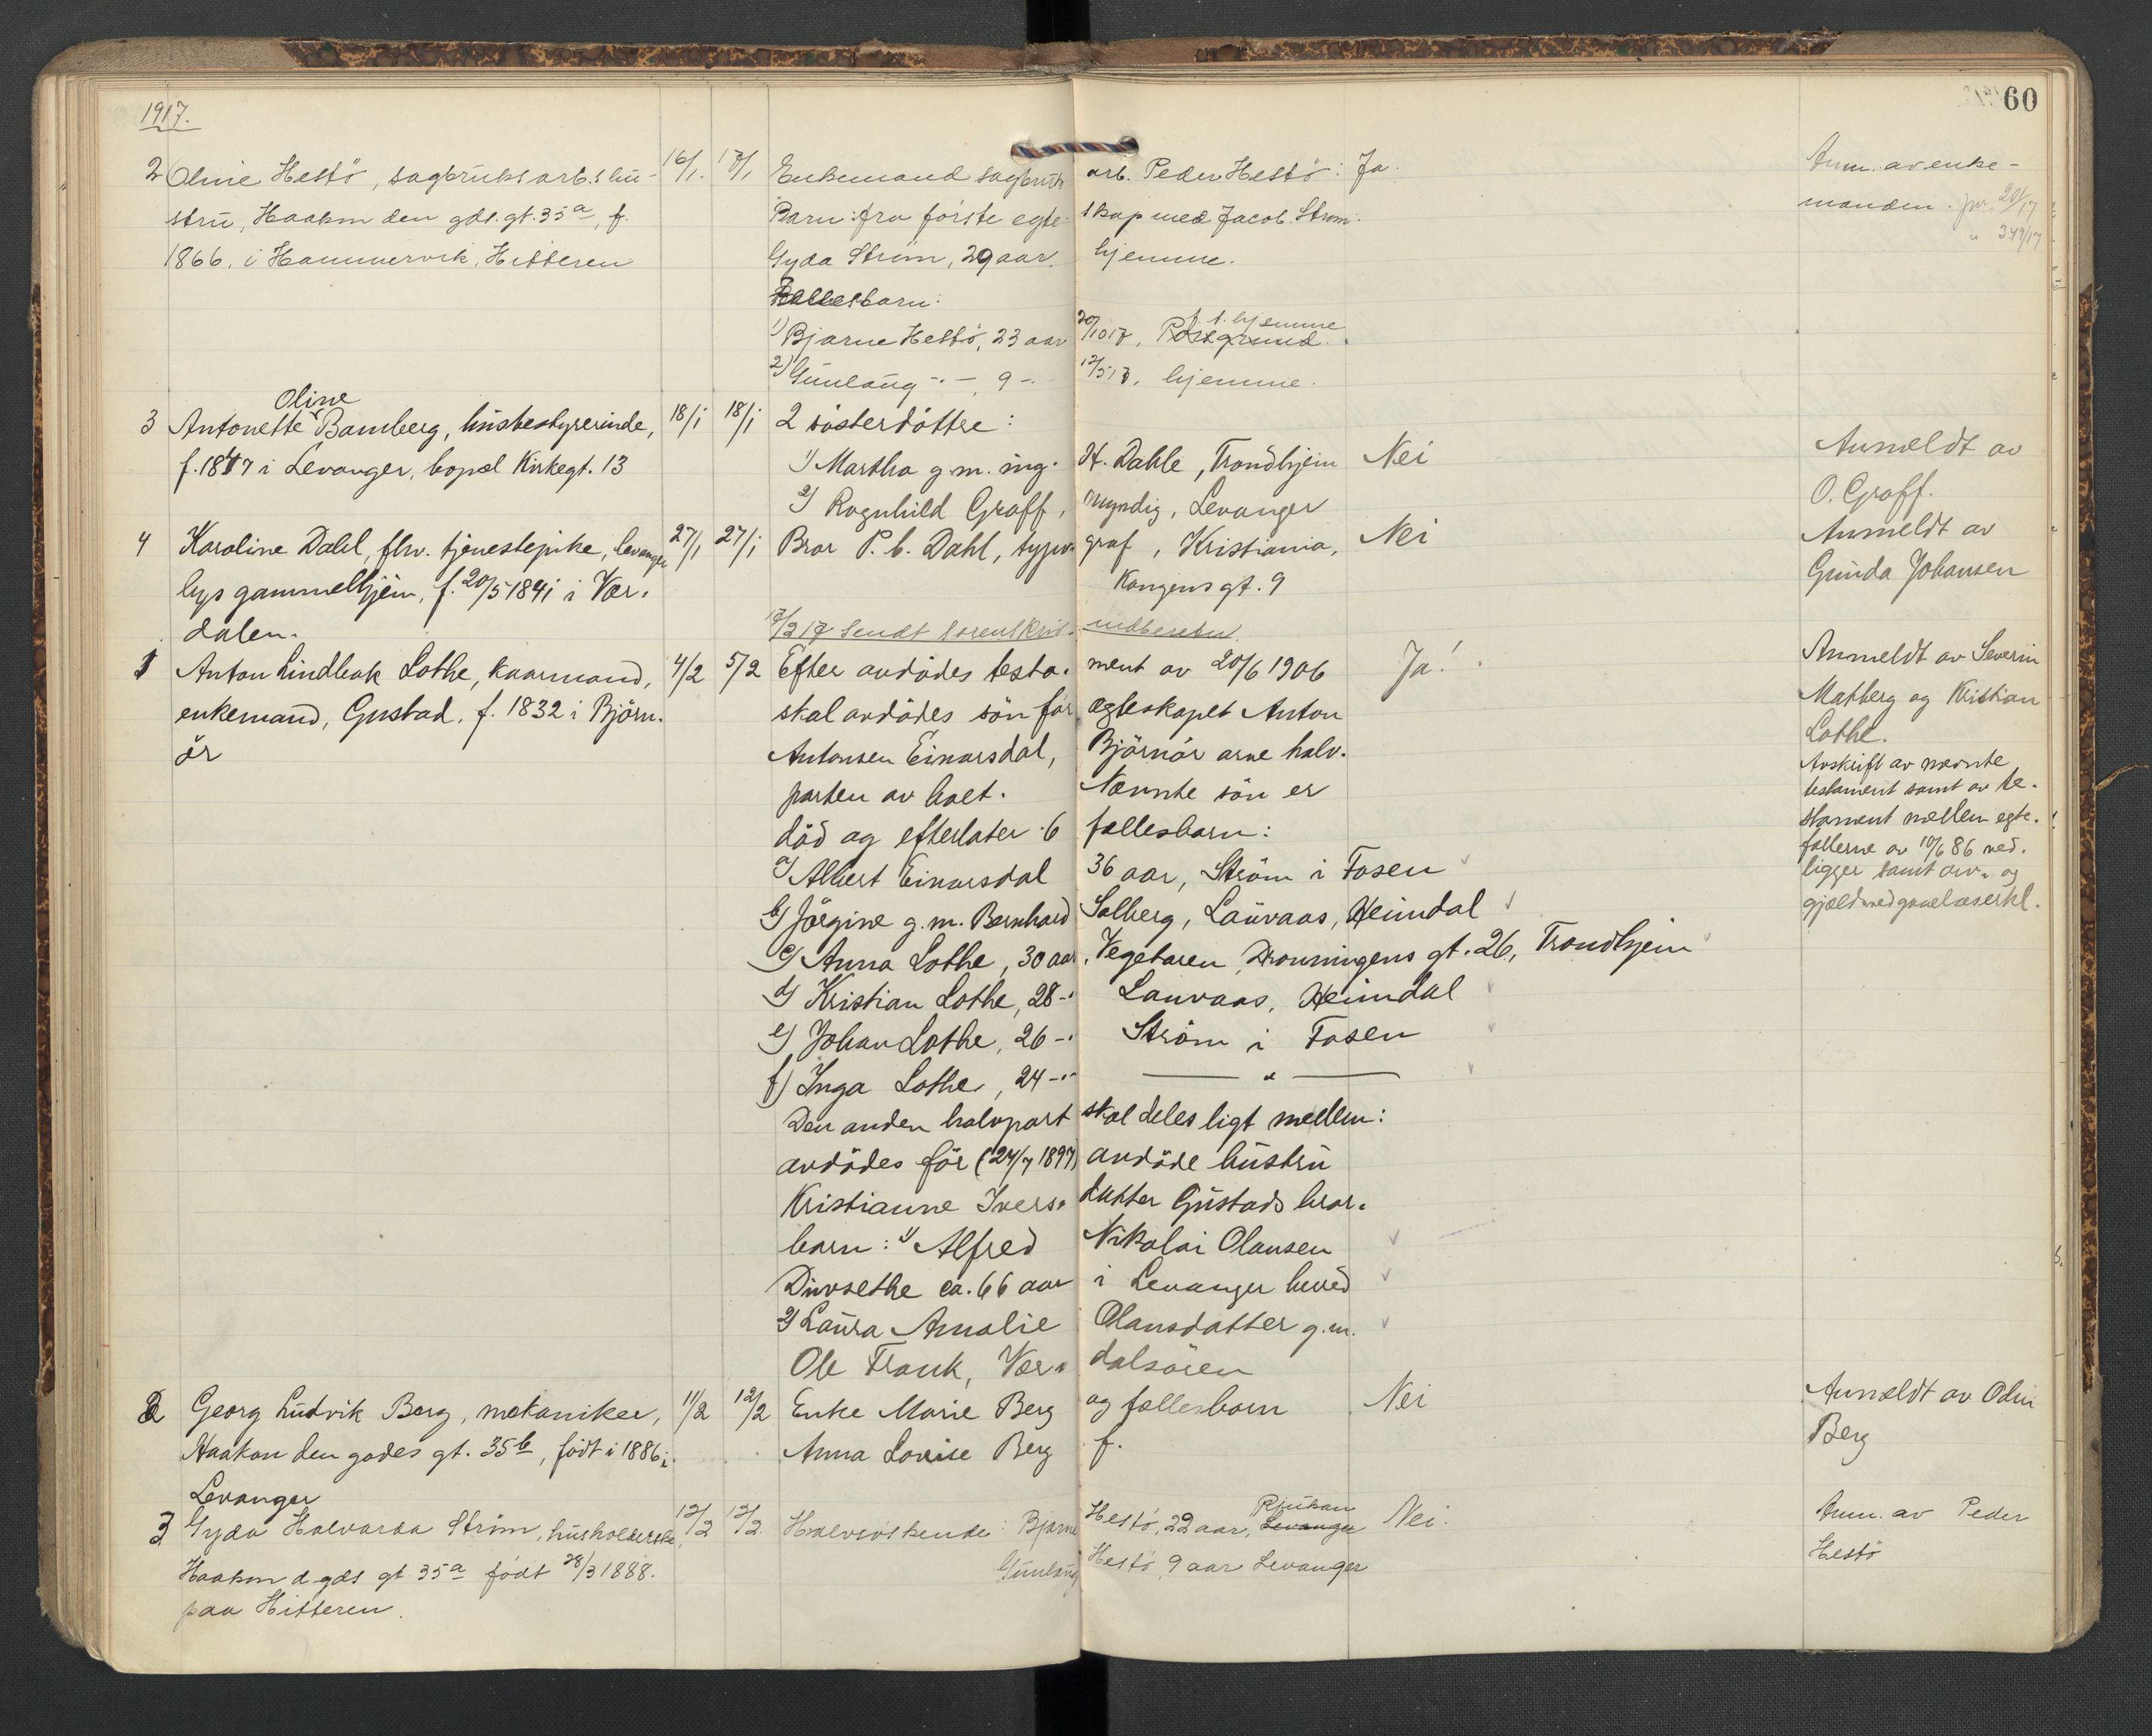 1917.
60
2 Oline Hestö, sagbruksarb.s hu- 16/1. 17/1 Enkemand sagbruks arb. Peder Hestö: Ja. Anm. av enke-
strü, Haakon den gdes. gt. 35a, f. Barn: fra förste egte- skap med Jacob Ström: manden.
1866, i Hammervik, Hitteren Gyda Ström, 29 aar. hjemme.
Fellesbarn:
1) Bjarne Hestö, 23 aar 20/10 17, Porsgrund. f. t. hjemme
2) Günlaüg -"- 9 -" 12/5 17, hjemme.
3 Antonette Oline Bamberg, hüsbestyrerinde, 18/1 18/1 2 sösterdöttre:
f. 1847 i Levanger, bopæl Kirkegt. 13 1) Martha g. m. ing. H. Dahle, Trondhjem Nei Anmeldt av
2) Ragnhild Graff, myndig, Levanger O. Graff.
4 Karoline Dahl, fhv. tjenestepike, Levanger 27/1 27/1 Bror P. C. Dahl, typo- graf, Kristiania, Nei Anmeldt av
bys gammelhjem, f. 20/5 1841 i Vær- Kongens gt. 9 Gunda Johansen
dalen. 17/2 17 Sendt sorenskriv. indberetn.
1 Anton Lindbak Lothe, kaarmand, 4/2 5/2 Efter avdödes testa- ment av 20/6 1906 Ja! Anmeldt av Severin
enkemand, Gustad, f. 1832 i Björn- skal avdödes sön för ægteskapet Anton Matberg og Kristian
ör Antonsen Einarsdal, Björnör arve halv- Lothe.
parten av boet. Nævnte sön er Avskrift av nævnte
död og efterlater 6 fællesbarn: testament samt av te-
a) Albert Einarsdal 36 aar, Ström i Fosen stament mellem egte-
b) Jörgine g. m. Bernhard Solberg, Lauvaas, Heimdal fællerne av 10/6 86 ved-
c) Anna Lothe, 30 aar, Vegetaren, Dronningens gt. 26, Trondhjem ligger samt arv- og
d) Kristian Lothe, 28 -" Lauvaas, Heimdal gjæld
e) Johan Lothe, 26 -" Ström i Fosen
f) Inga Lothe, 24 -" — " —
Den anden halvpart skal deles ligt mellem:
avdödes för (24/7 1897) avdöde hüstrü
Kristianne Ivers- datter Gustads bror-
barn: 1) Alfred Nikolai Olausen
Dürsethe ca. 66 aar i Levanger herred
2) Laüra Amalie Olausdatter g. m.
Ole Frank, Vær- dalsören
2 Georg Ludvik Berg, mekaniker, 11/2 12/2 Enke Marie Berg og fællesbarn Nei Anmeldt av Odin
Haakon den godes gt. 35b, födt i 1886 i Anna Lovise Berg f. Berg
Levanger
3 Gyda Halvarda Ström, husholderske, 12/2 12/2 Halvsöskende: Bjarne Hestö, 22 aar, Levanger Rjukan Nei. Anm. av Peder
Haakon d. gds gt. 35a födt 28/3 1888. Günlaüg Hestö, 9 aar Levanger Hestö
paa Hitteren.